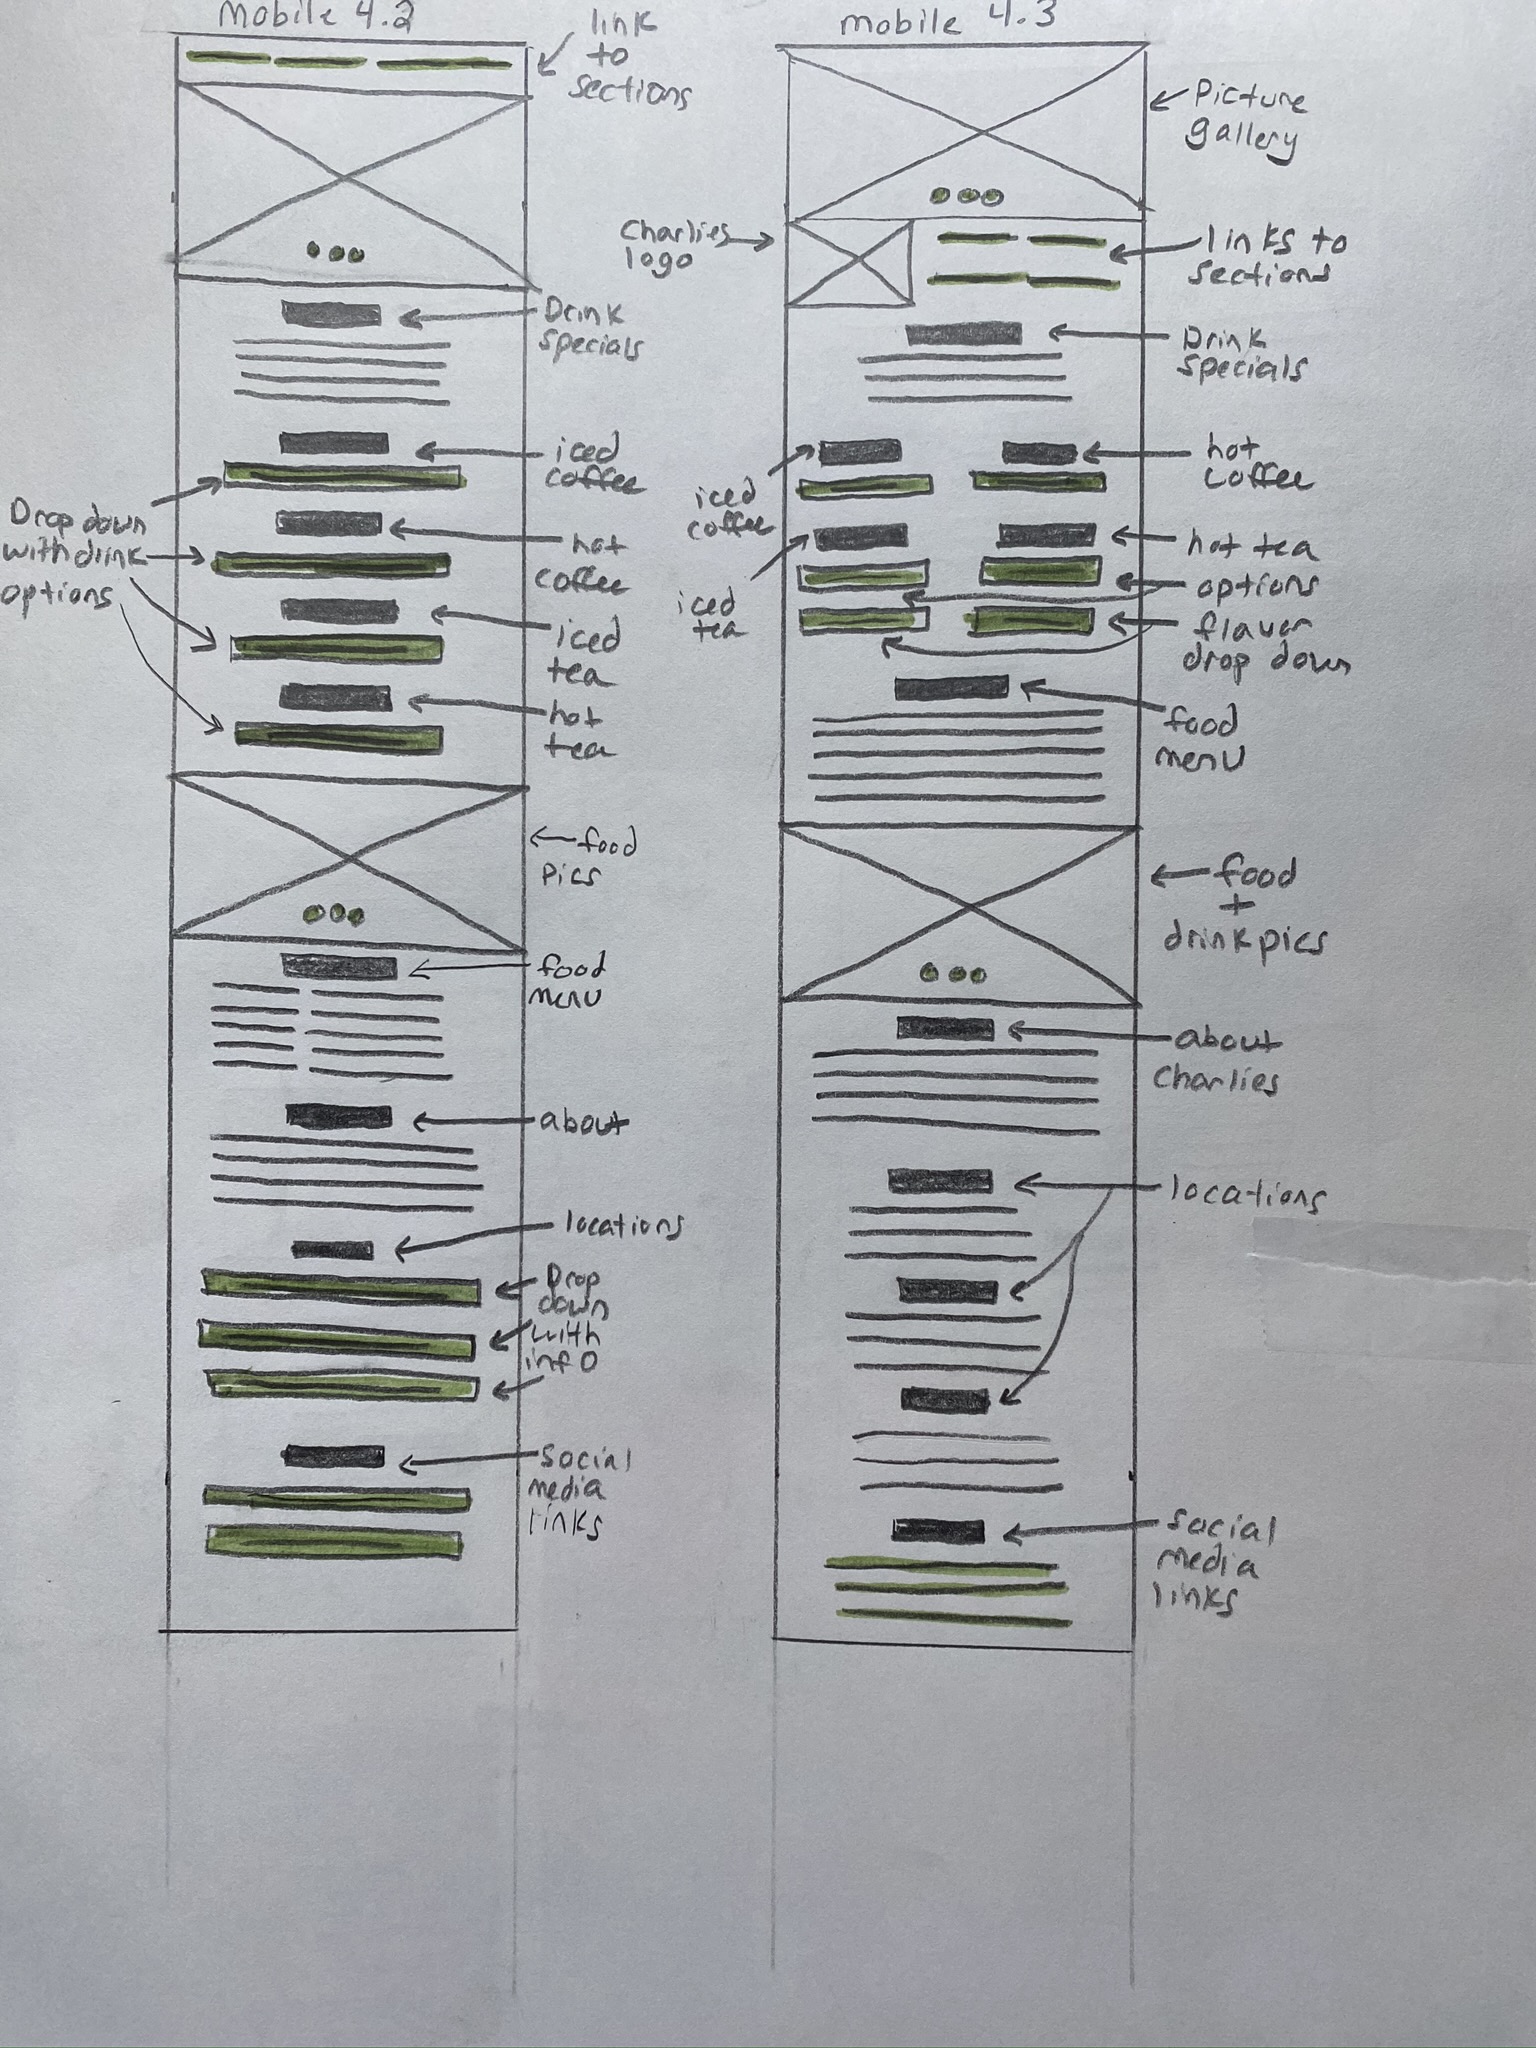 mobile 4.2
link
to
sections
Drink
specials
iced
coffee
Drop down
with drink
options
hot
coffee
iced
tea
hot
tea
food
pics
food
menu
about
locations
Drop
down
with
info
Social
media
links
mobile 4.3
Picture
gallery
Charlies
logo
links to
sections
Drink
specials
iced
coffee
hot
coffee
iced
tea
hot tea
options
flavor
drop down
food
menu
food
+
drink pics
about
Charlies
locations
social
media
links